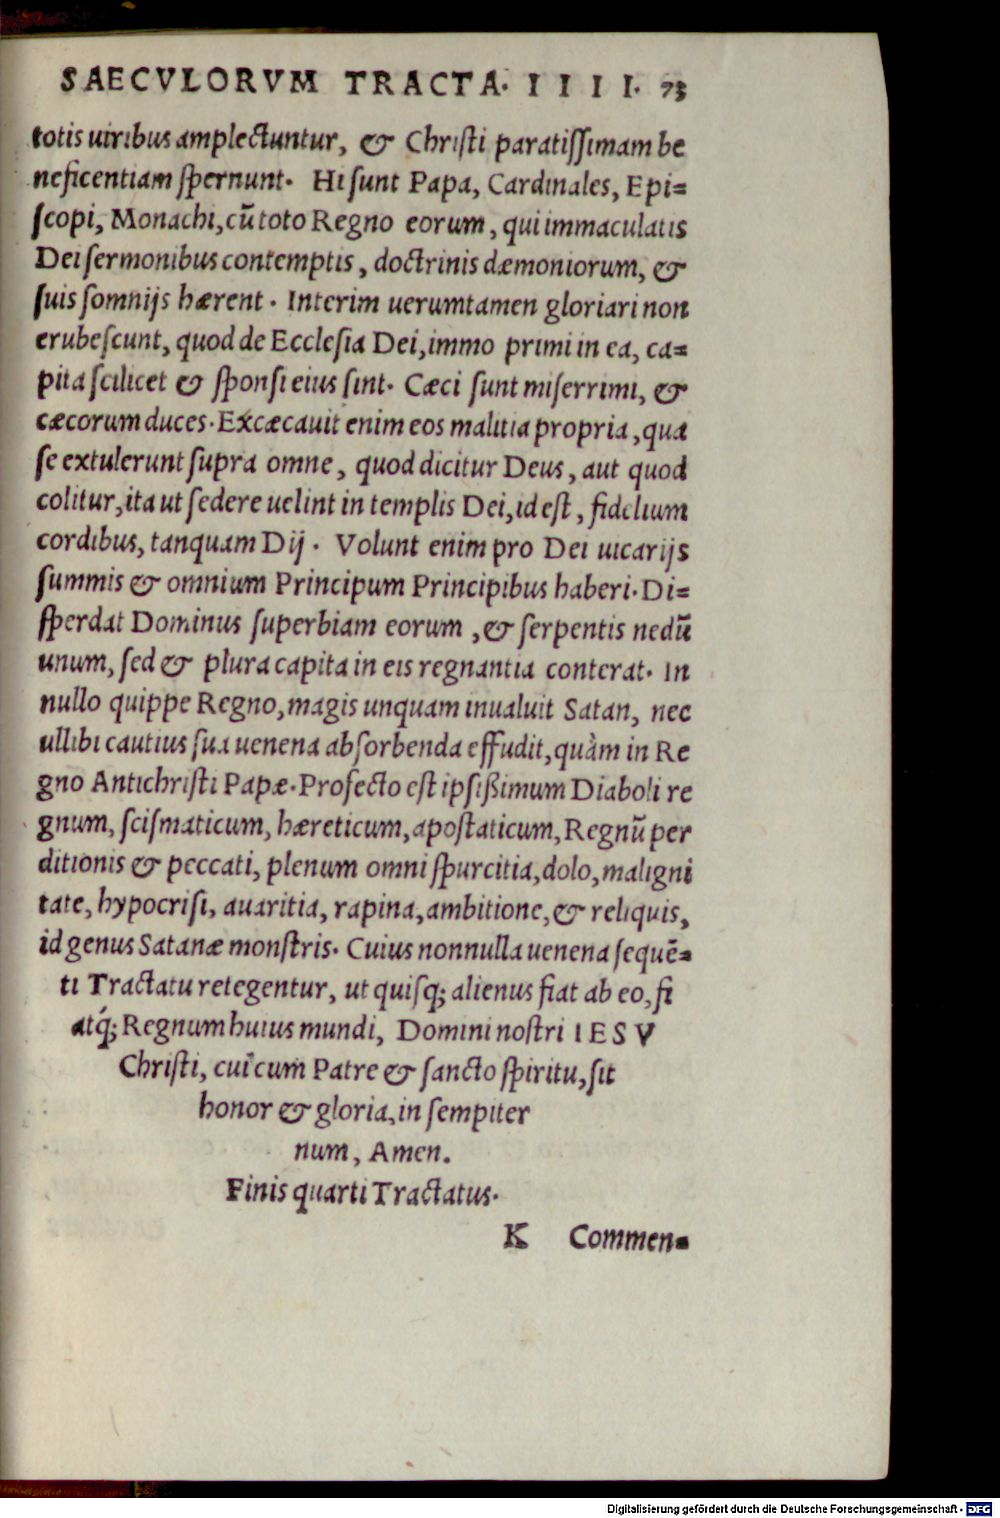 SAECVLORVM TRACTA. I I I I. 73
totis uiribus amplectuntur, & Christi paratissimam be
neficentiam spernunt. Hi sunt Papa, Cardinales, Epi=
scopi, Monachi, cũ toto Regno eorum, qui immaculatis
Dei sermonibus contemptis, doctrinis dæmoniorum, &
suis somnijs hærent. Interim uerumtamen gloriari non
erubescunt, quod de Ecclesia Dei, immo primi in ea, ca=
pita scilicet & sponsi eius sint. Cæci sunt miserrimi, &
cæcorum duces. Excæcauit enim eos malitia propria, qua
se extulerunt supra omne, quod dicitur Deus, aut quod
colitur, ita ut sedere uelint in templis Dei, id est, fidelium
cordibus, tanquam Dij. Volunt enim pro Dei uicarijs
summis & omnium Principum Principibus haberi. Di=
sperdat Dominus superbiam eorum, & serpentis nedũ
unum, sed & plura capita in eis regnantia conterat. In
nullo quippe Regno, magis unquam inualuit Satan, nec
ullibi cautius sua uenena absorbenda effudit, quàm in Re
gno Antichristi Papæ. Profecto est ipsißimum Diaboli re
gnum, scismaticum, hæreticum, apostaticum, Regnũ per
ditionis & peccati, plenum omni spurcitia, dolo, maligni
tate, hypocrisi, auaritia, rapina, ambitione, & reliquis,
id genus Satanæ monstris. Cuius nonnulla uenena sequē=
ti Tractatu retegentur, ut quisq; alienus fiat ab eo, fi
atq́; Regnum huius mundi, Domini nostri I E S V
Christi, cui cum Patre & sancto spiritu, sit
honor & gloria, in sempiter
num, Amen.
Finis quarti Tractatus.
K Commen=
Digitalisierung gefördert durch die Deutsche Forschungsgemeinschaft - DFG